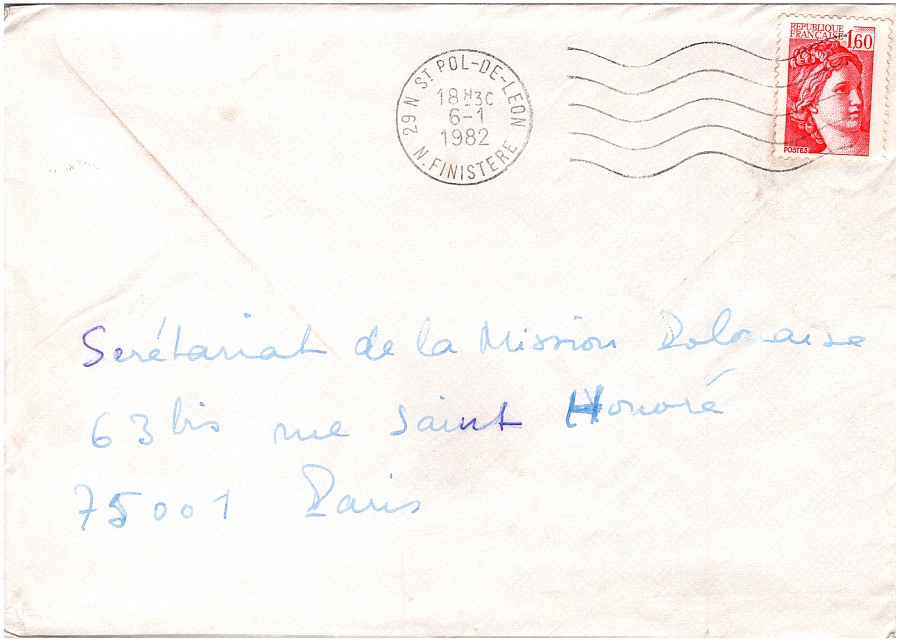 REPUBLIQUE
FRANÇAISE 1,60
POSTES
29 N ST POL-DE-LEON
18H30
6-1
1982
N. FINISTERE
Serétariat de la Mission Polonaise
63 bis rue Saint Honoré
75001 Paris